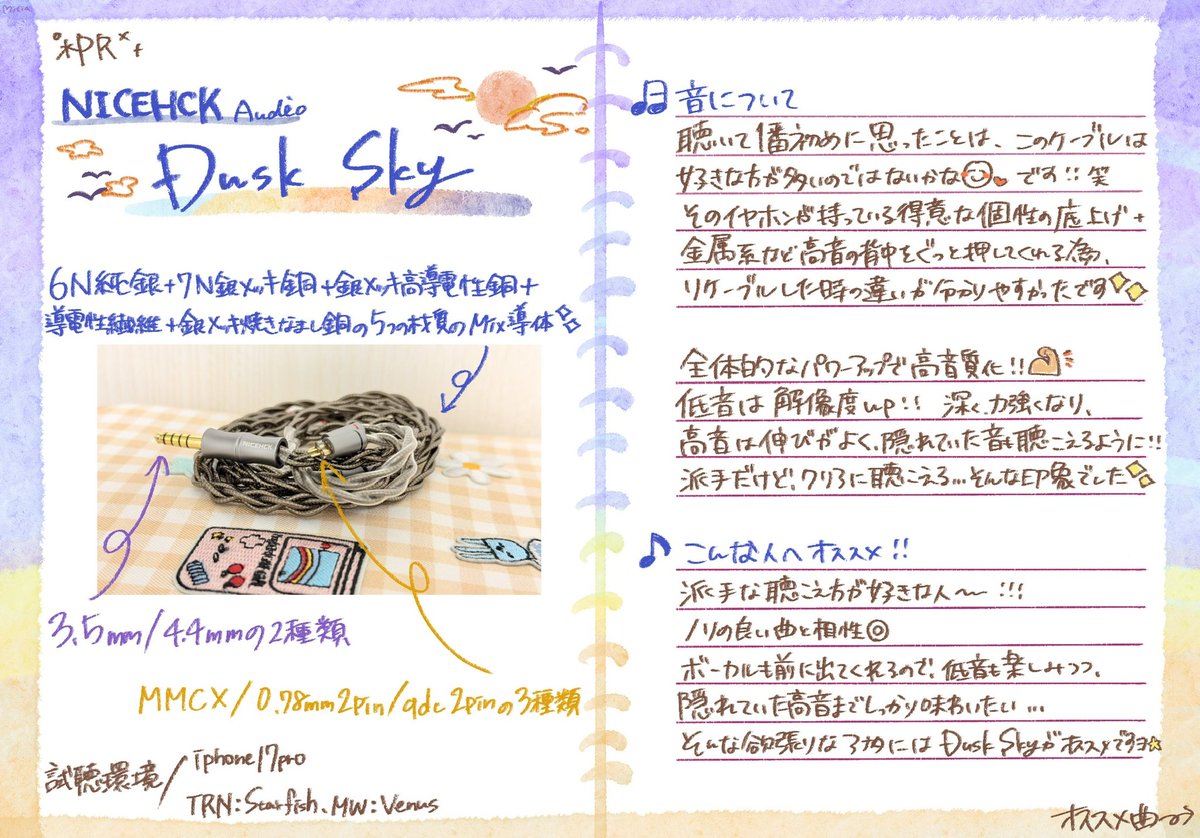 ※PR
NICEHCK Audio
Dusk Sky
6N純銀+7N銀メッキ銅+銀メッキ高導電性銅+
導電性繊維+銀メッキ焼きなまし銅の5つの材質のMix導体
NICEHCK
3.5mm/4.4mmの2種類
MMCX/0.78mm2pin/qdc2pinの3種類
試聴環境/iphone17pro
TRN:Starfish、MW:Venus
音について
聴いて1番初めに思ったことは、このケーブルは
好きな方が多いのではないかな です!!笑
そのイヤホンが持っている得意な個性の底上げ+
金属系など高音の背中をぐっと押してくれる為、
リケーブルした時の違いが分かりやすかったです
全体的なパワーアップで高音質化!!
低音は解像度up!! 深く、力強くなり、
高音は伸びがよく、隠れていた音も聴こえるように!!
派手だけど、クリアに聴こえる…そんな印象でした
こんな人へオススメ!!
派手な聴こえ方が好きな人〜!!!
ノリの良い曲と相性◎
ボーカルも前に出てくれるので、低音も楽しみつつ、
隠れていた高音までしっかり味わいたい…
そんな欲張りな方にはDusk Skyがオススメですヨ
オススメ曲→